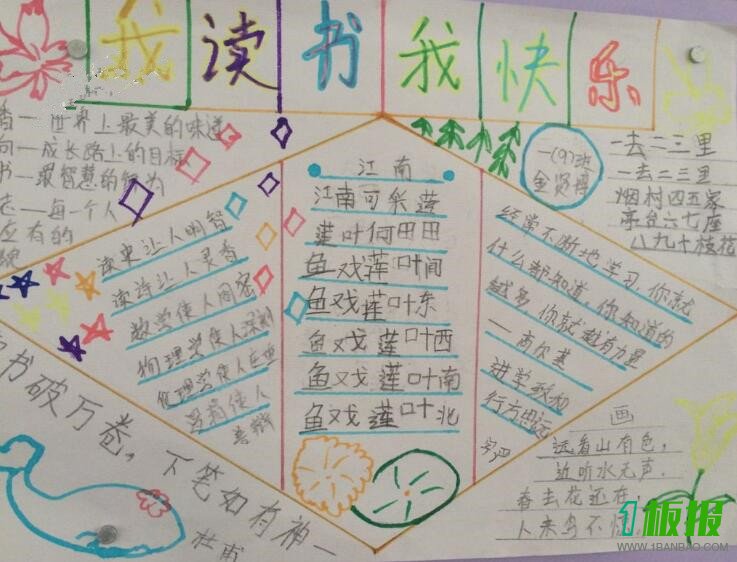 我读书我快乐
香一世界上最美的味道
向一成长路上的目标
书一最智慧的行为
志一每一个人
应有的
读史让人明智
读诗让人灵秀
数学使人周密
物理学使人深刻
伦理学使人庄重
逻辑使人
善辩
江南
江南可采莲
莲叶何田田
鱼戏莲叶间
鱼戏莲叶东
鱼戏莲叶西
鱼戏莲叶南
鱼戏莲叶北
一(9)班
经常不断地学习,你就
什么都知道。你知道的
越多,你就越有力量
—高尔基
进学致和
行方思远
一去二三里
一去二三里
烟村四五家
亭台六七座
八九十枝花
画
远看山有色,
近听水无声.
春去花还在
人来鸟不惊
书破万卷,下笔如有神一
杜甫
1板报
WWW.1BANBAO.COM